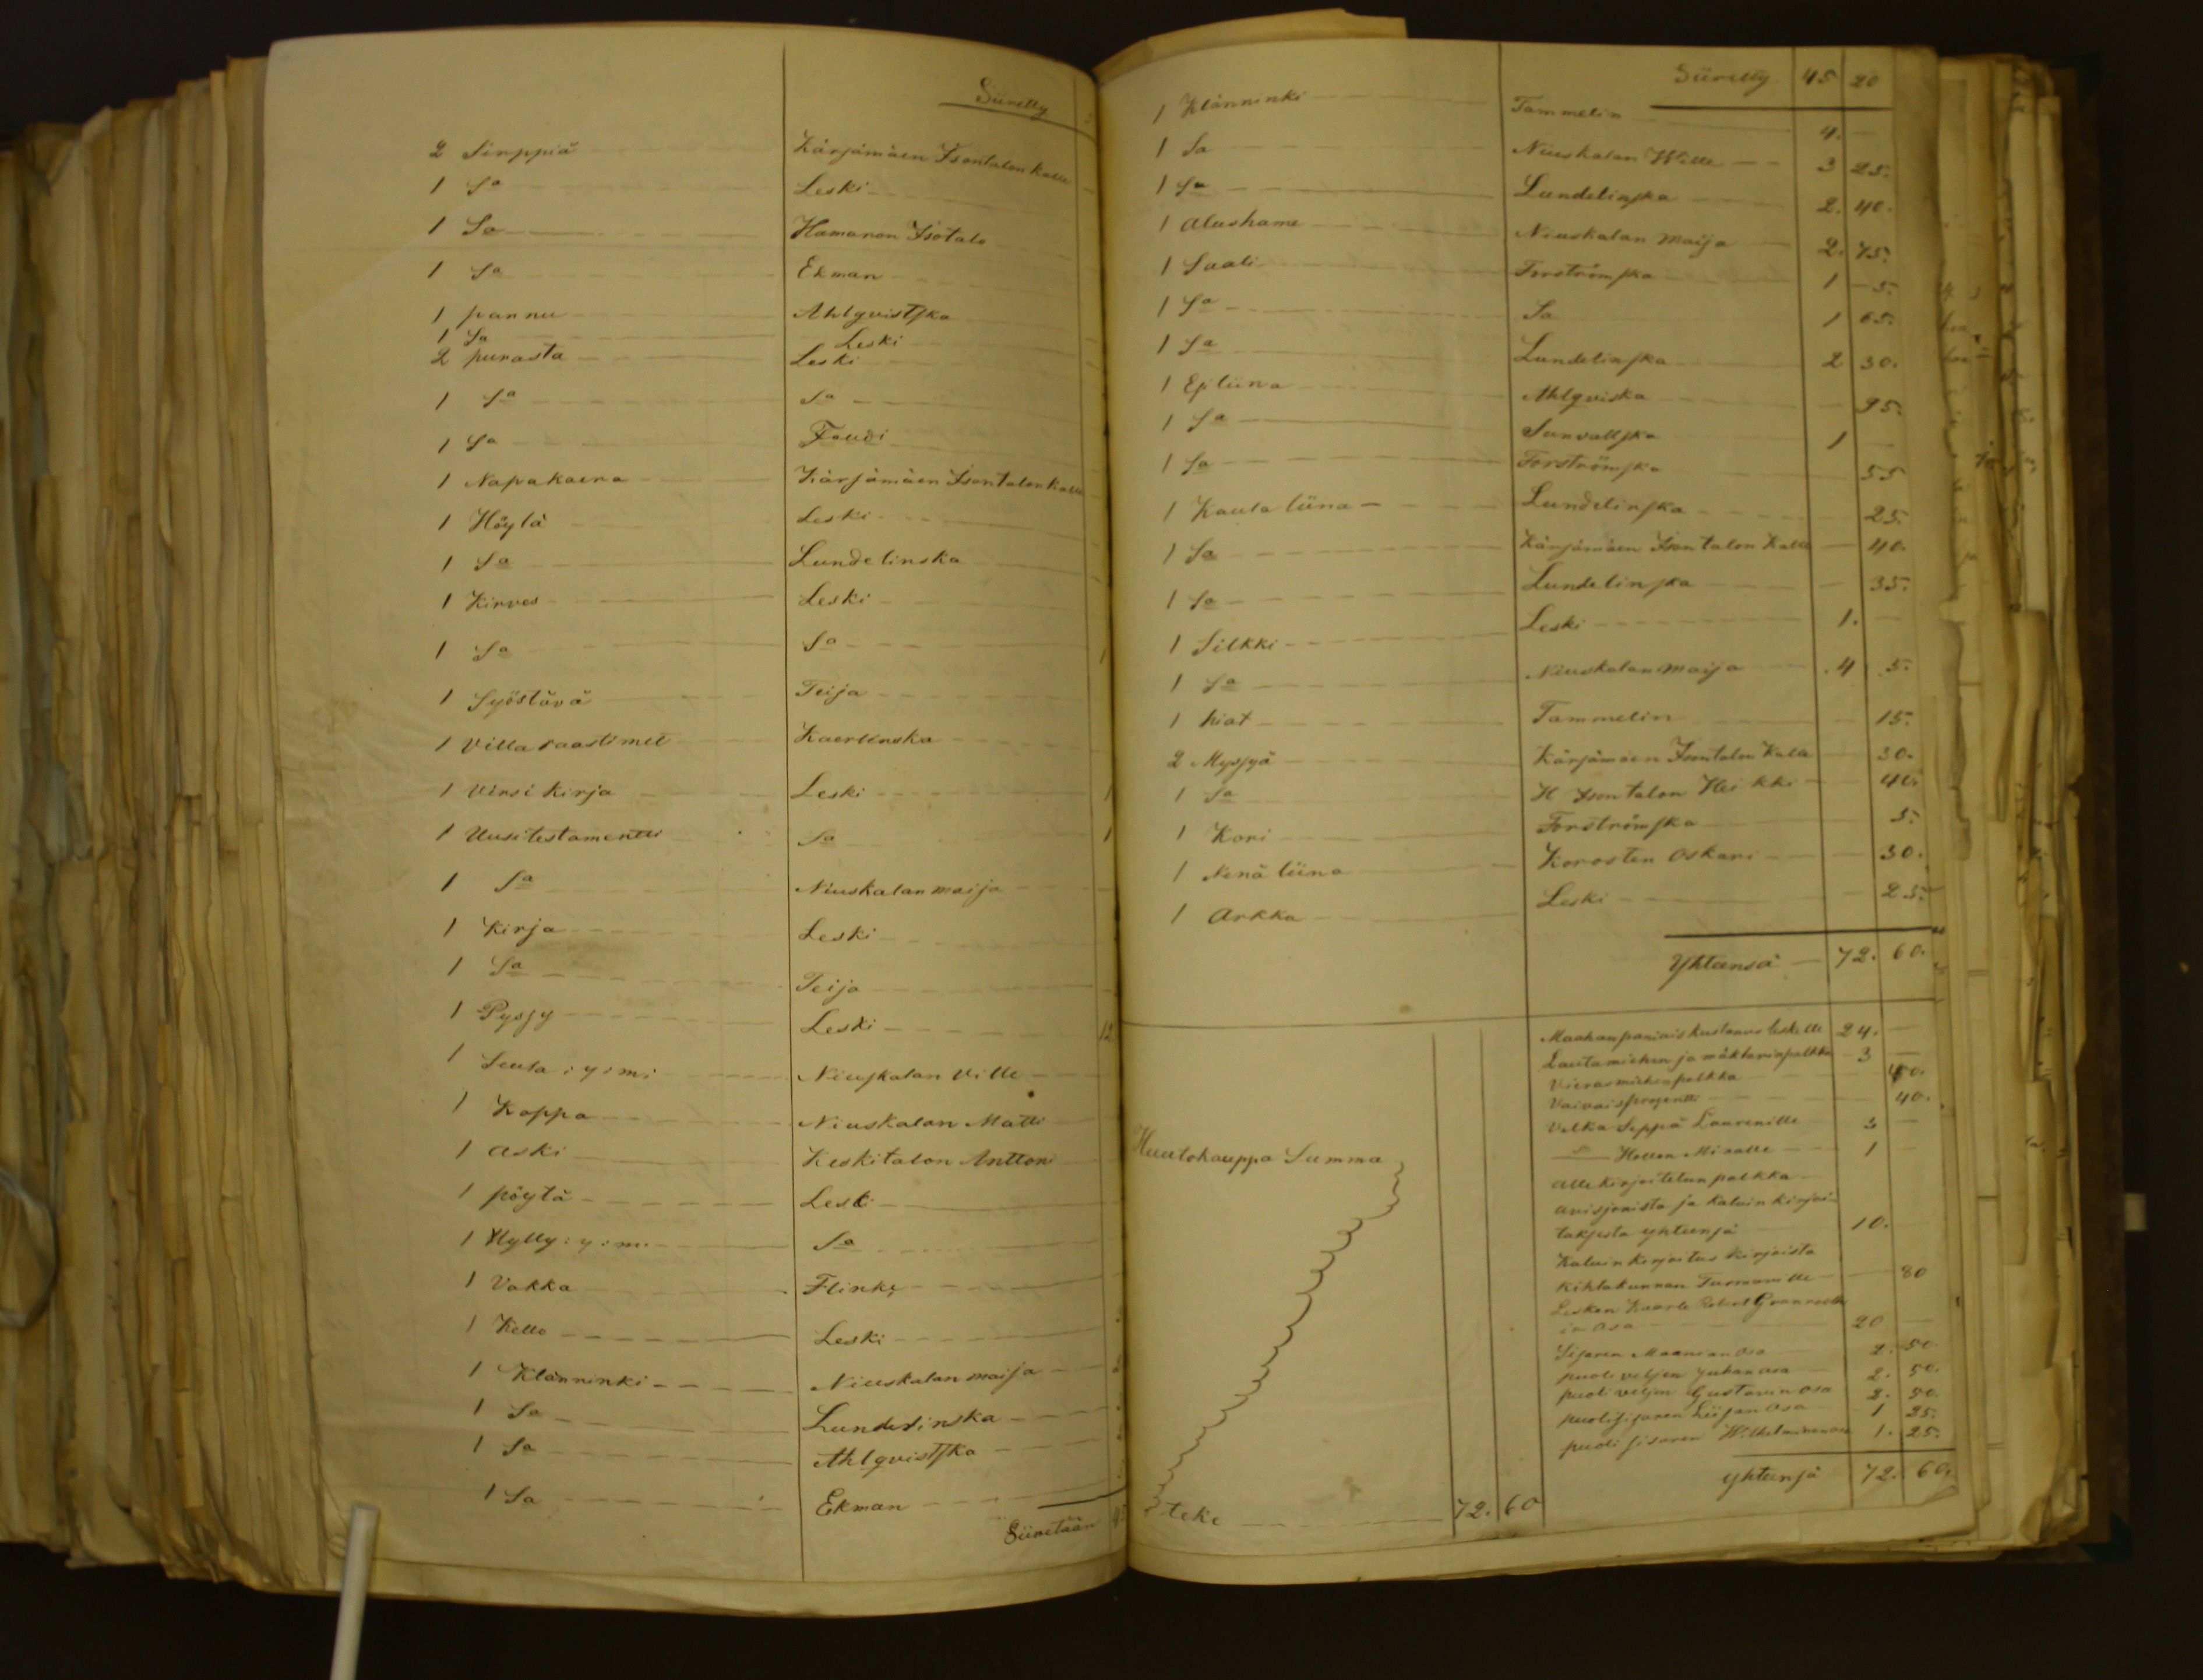 Siiretty
2 Sirppiä Kärjämäen Isontalon Kalle
1 Sa Leski
1 Sa Hamaron Isotalo
1 Sa Ekman
1 pannu Ahlqvistska
1 Sa Leski
2 purasta Leski
1 Sa Sa
1 Sa Foudi
1 Napakaira Kärjämäen Isontalon Kalle
1 Höylä Leski
1 Sa Lundelinska
1 Kirves Leski
1 Sa Sa
1 Syöstävä Teija
1 Villa raastimet
1 Virsi Kirja Leski 1
1 Uusitestamentti Sa 1
1 Sa Niuskalan maija
1 Kirja Leski
1 Sa Teija
1 Pyssy Leski 12
1 Seula : y : m : Niuskalan Ville
1 Koppa Niuskalan Matti
1 aski Keskitalon Anttoni
1 pöytä Leski
1 Hylly : y : m. Sa
1 Vakka Flinks
1 Kello Leski
1 Klänninki Niuskalan maija
1 Sa Lundelinska
1 Sa Ahlqvistska
1 Sa Ekman
Siiretään
Siiretty 45 20
1 Klänninki Tammelin 4. —
1 Sa Niuskalan Wille 3 25.
1 Sa Lundelinska 2. 40.
1 alushame Niuskalan maija 2. 75.
1 Saali Forströmska 1 5.
1 Sa Sa 1 65.
1 Sa Lundelinska 2 30.
1 Esiliina Ahlqviska 95.
1 Sa Sunvallska 1 —
1 Sa Forströmska 55
1 Kaula liina Lundelinska 25.
1 Sa Kärjämäen Isontalon Kalle 40.
1 Sa Lundelinska 35.
1 Silkki Leski 1. —
1 Sa Niuskalan maija 4 5.
1 hiat Tammelin 15.
2 Myssyä Kärjämäen Isontalon Kalle 30.
1 Sa H Isontalon Heikki 40.
1 Kori Forströmska 5.
1 Nenä liina Korosten Oskari 30.
1 Arkka Leski 25.
Yhteensä 72. 60.
Maahanpaniais kustannus leskelle 24. —
Lautamiehen ja wäktarinpalkka 3 —
Vierasmiehenpalkka 40.
Vaivaisprosentti 40.
Velka Seppä Laurenille 3 —
Hollon Minalle 1
allekirjoitetun palkka
avisjonista ja kaluin kirjoi-
taksesta yhteensä 10.
Kaluin kirjoitus kirjoista
Kihlakunnan Tuomarille 80
Lesken Kaarle Robert Granroothi
in osa 20 —
Sisaren Maensan osa 2. 50.
puoli veljen Juhan osa 2. 50.
puoli veljen Gustavin osa 2. 50.
puolisisaren Liisan osa 1 25.
puoli sisaren Wilhelminan osa 1. 25.
yhteensä 72. 60.
Huutokauppa Summa
teke 72. 60